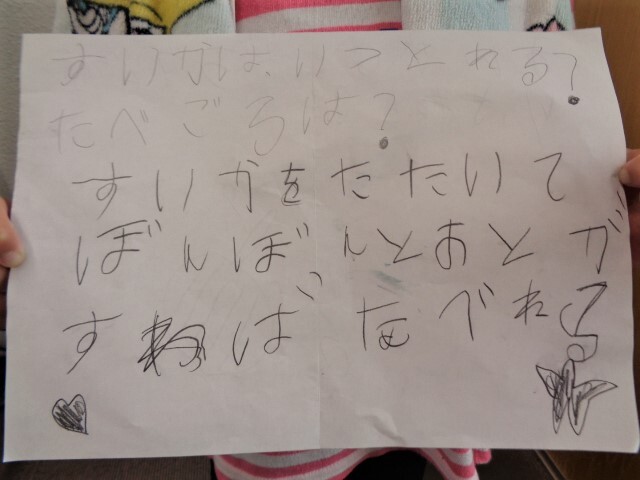 すいかは、いつとれる?
たべごろは?
すいかをたたいて
ぼんぼんとおとが
すれば、たべれる。